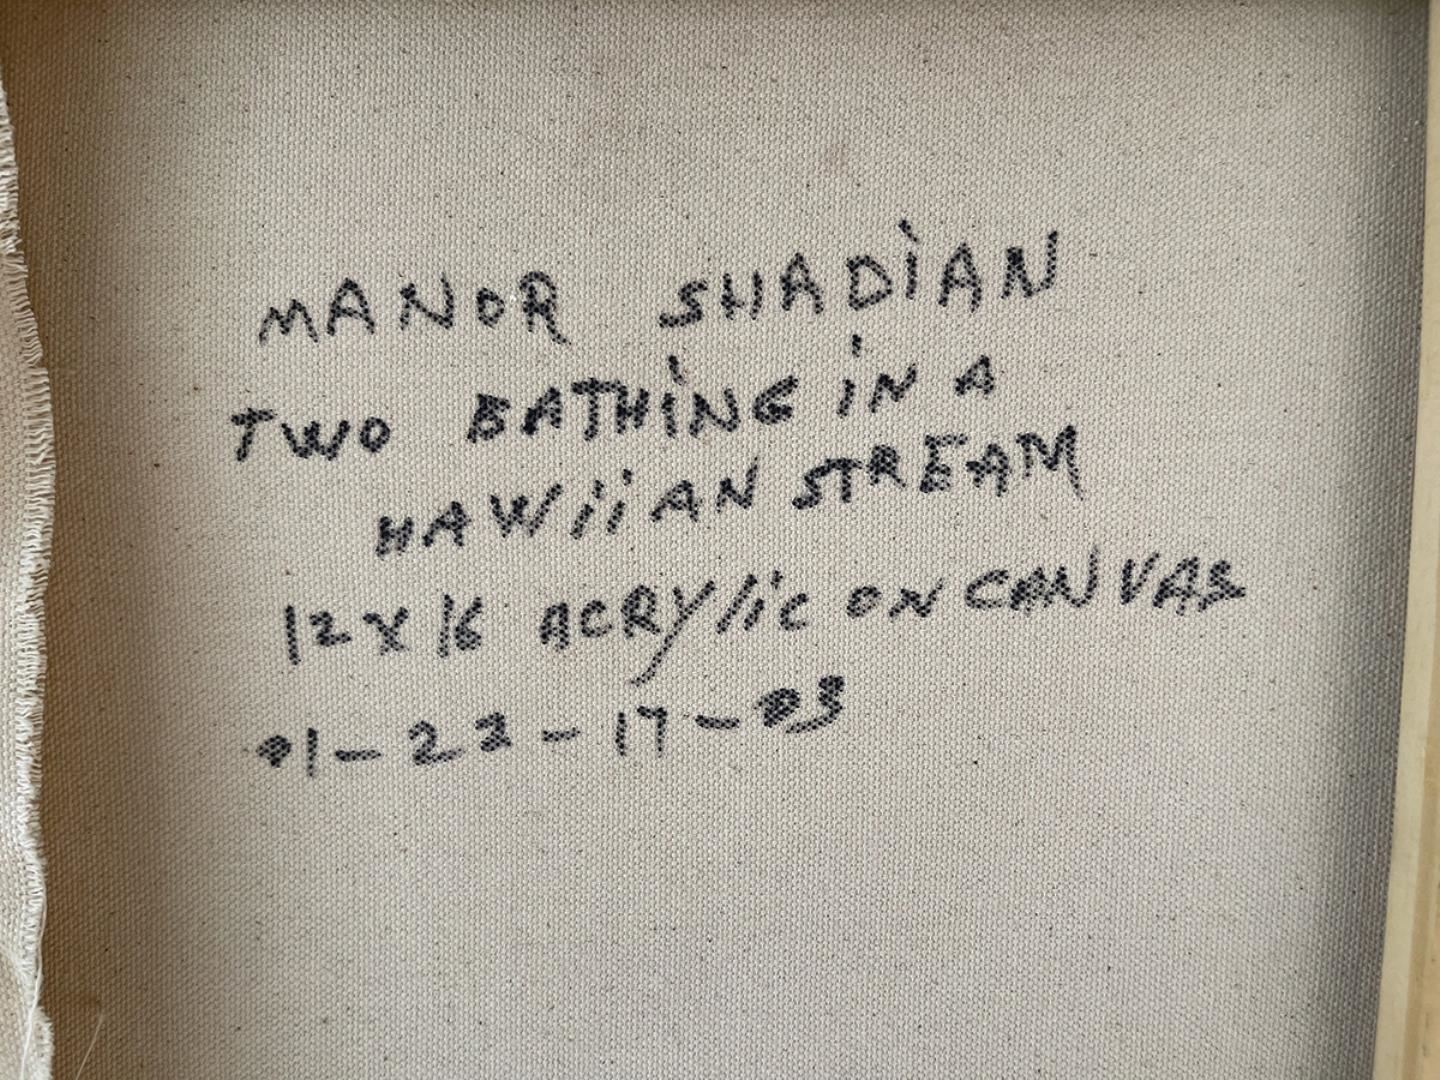 MANOR SHADIAN
TWO BATHING IN A
HAWIIAN STREAM
12 x 16 ACRYLIC ON CANVAS
01-22-17-03